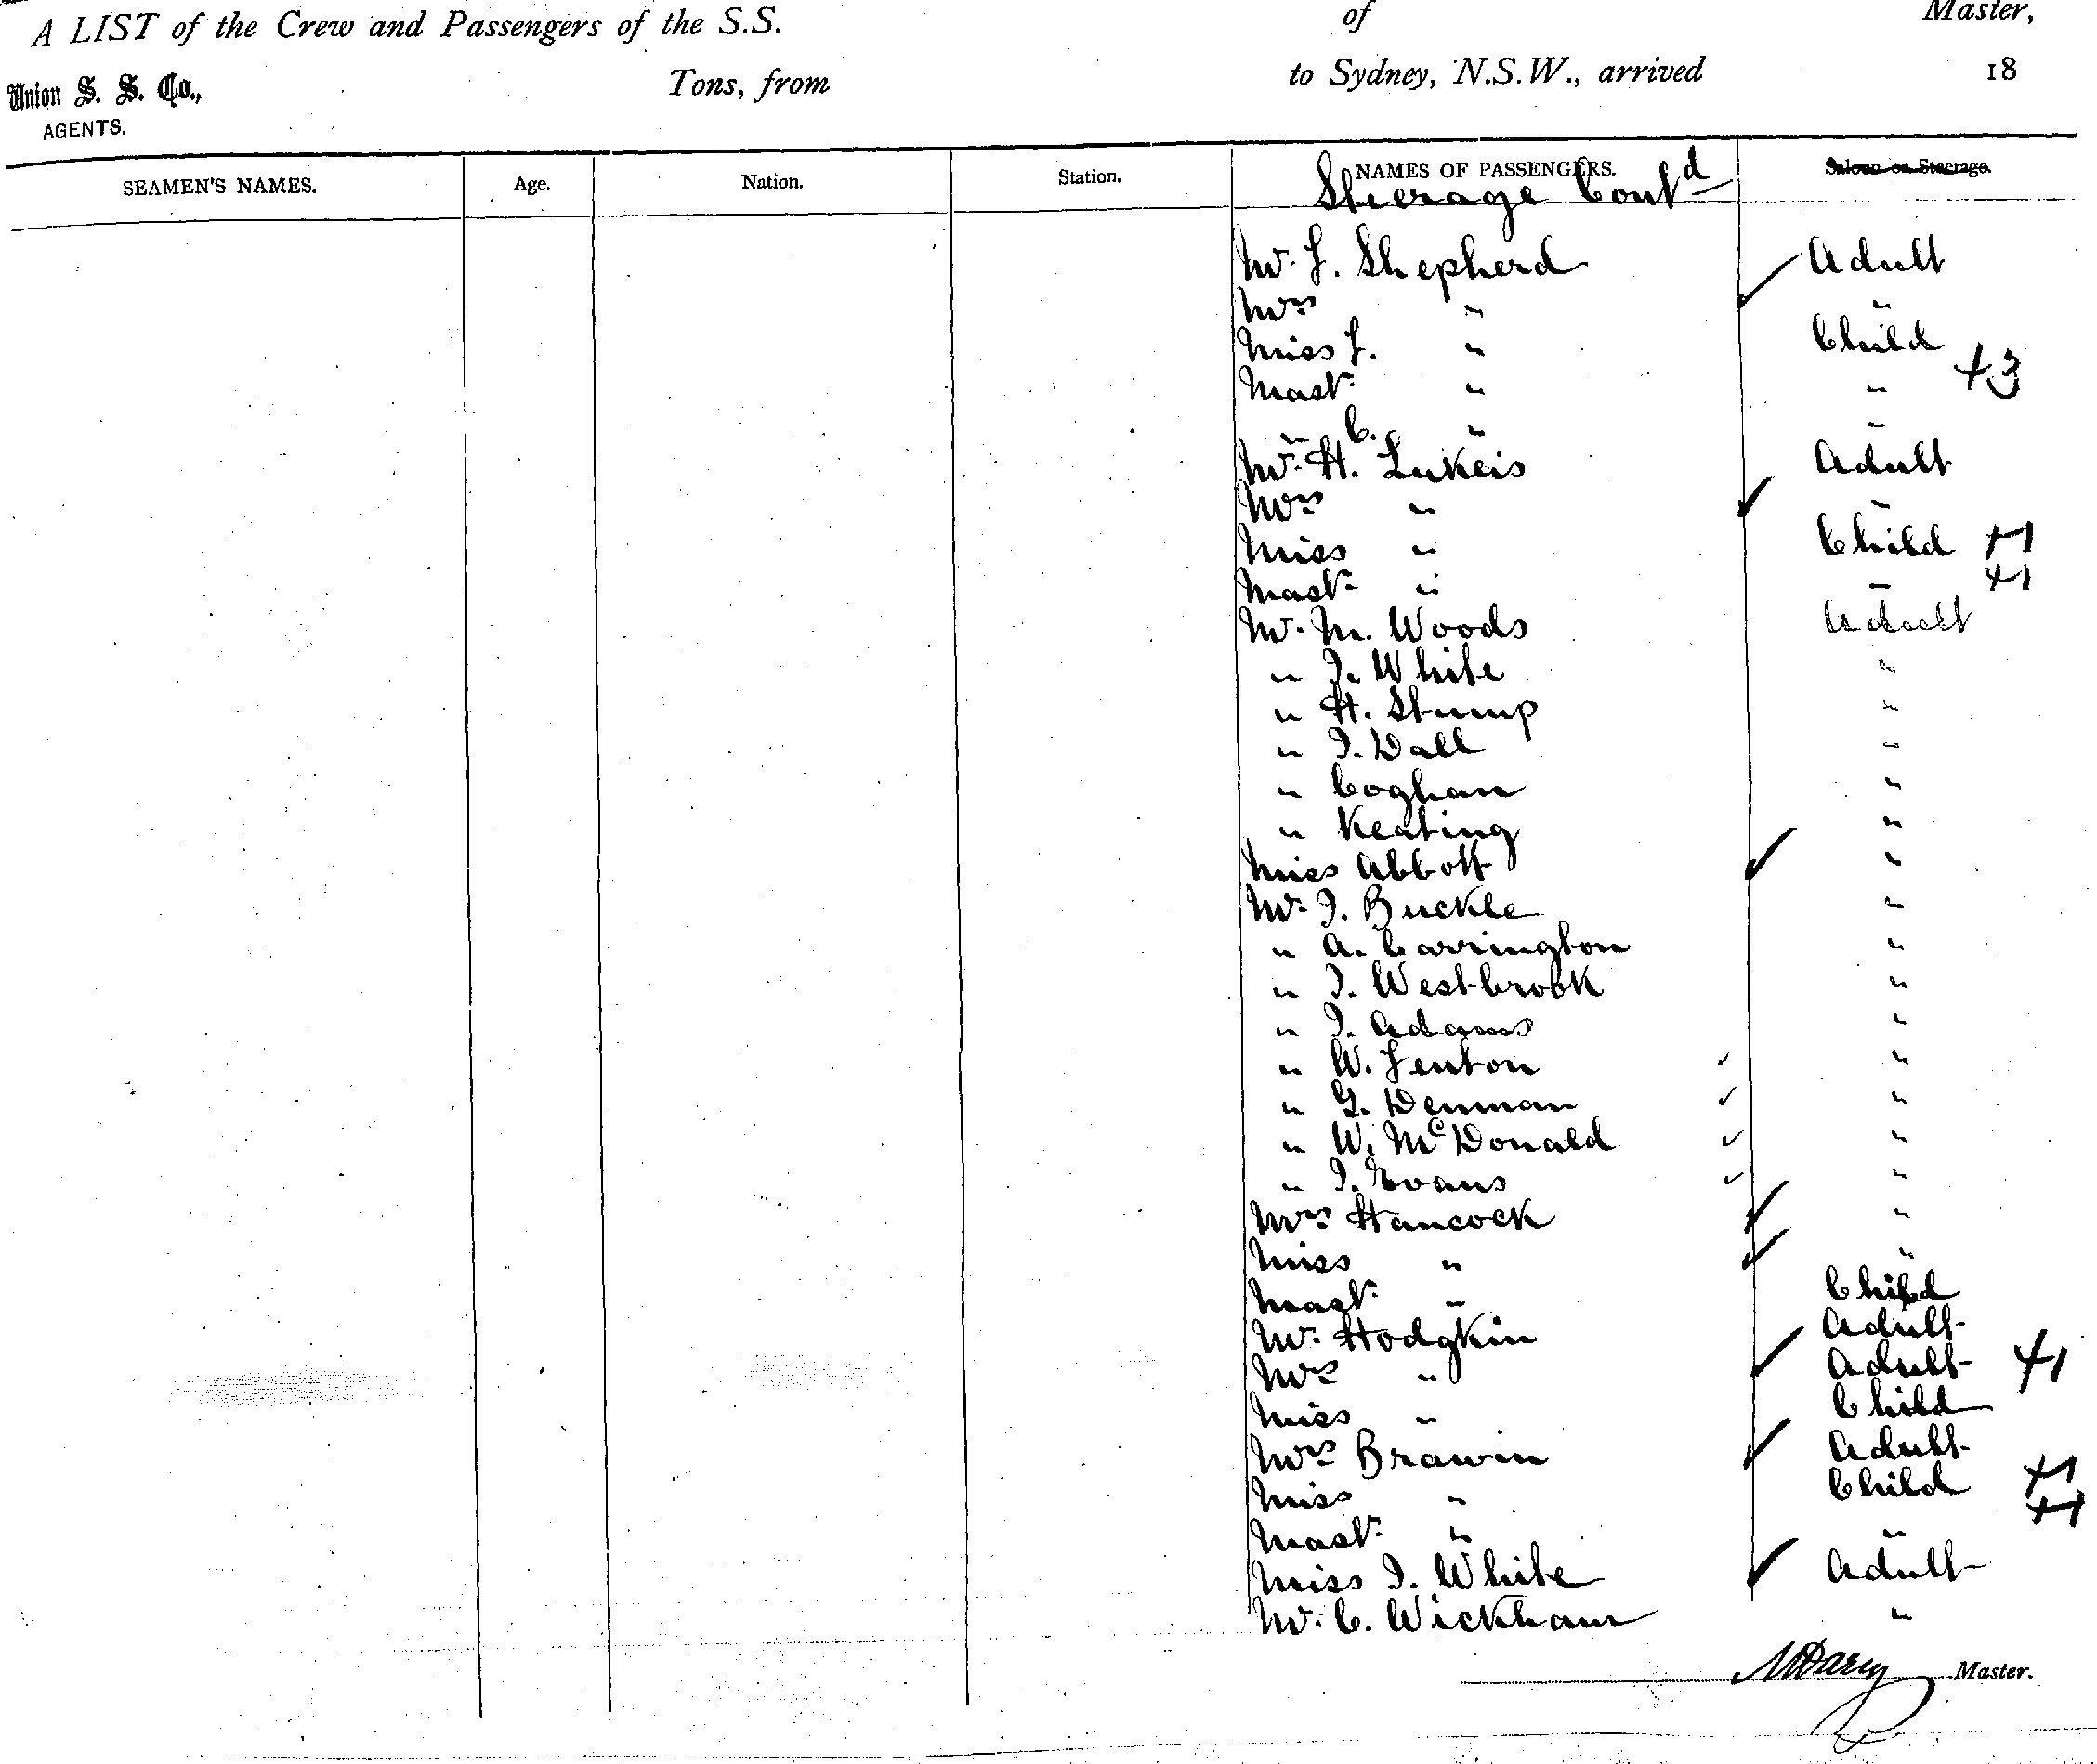 A LIST of the Crew and Passengers of the S.S. of Master,
Union S. S. Co., Tons, from to Sydney, N.S.W., arrived 18
AGENTS.
SEAMEN'S NAMES. Age. Nation. Station. NAMES OF PASSENGERS. Saloon or Steerage.
Steerage Contd
Mr. F. Shepherd Adult
Mrs " "
Miss F. " Child
Mast. " " +3
" C. " "
Mr. H. Lukeis Adult
Mrs " "
Miss " Child +1
Mast. " " +1
Mr. M. Woods Adult
" J. White "
" H. Stump "
" J. Dall "
" Coghan "
" Keating "
Miss Abbott "
Mr. J. Buckle "
" A. Carrington "
" J. Westbrook "
" J. Adams "
" W. Fenton "
" G. Denman "
" W. McDonald "
" J. Evans "
Mrs Hancock "
Miss " "
Mast. " Child
Mr. Hodgkin Adult
Mrs " Adult +1
Miss " Child
Mrs Brawin Adult
Miss " Child +1
Mast. " " +1
Miss J. White Adult
Mr. C. Wickham "
Master.